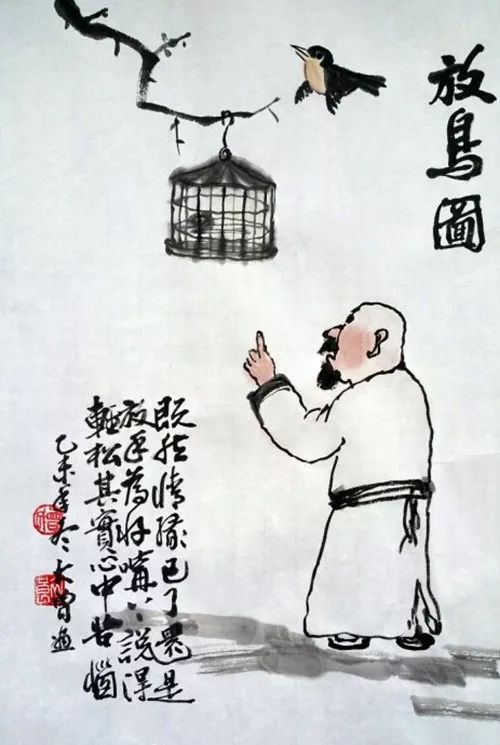 放鳥圖
既然情緣已了還是
放手為好嘴上說得
輕松其實心中苦惱
乙未年冬大曾画